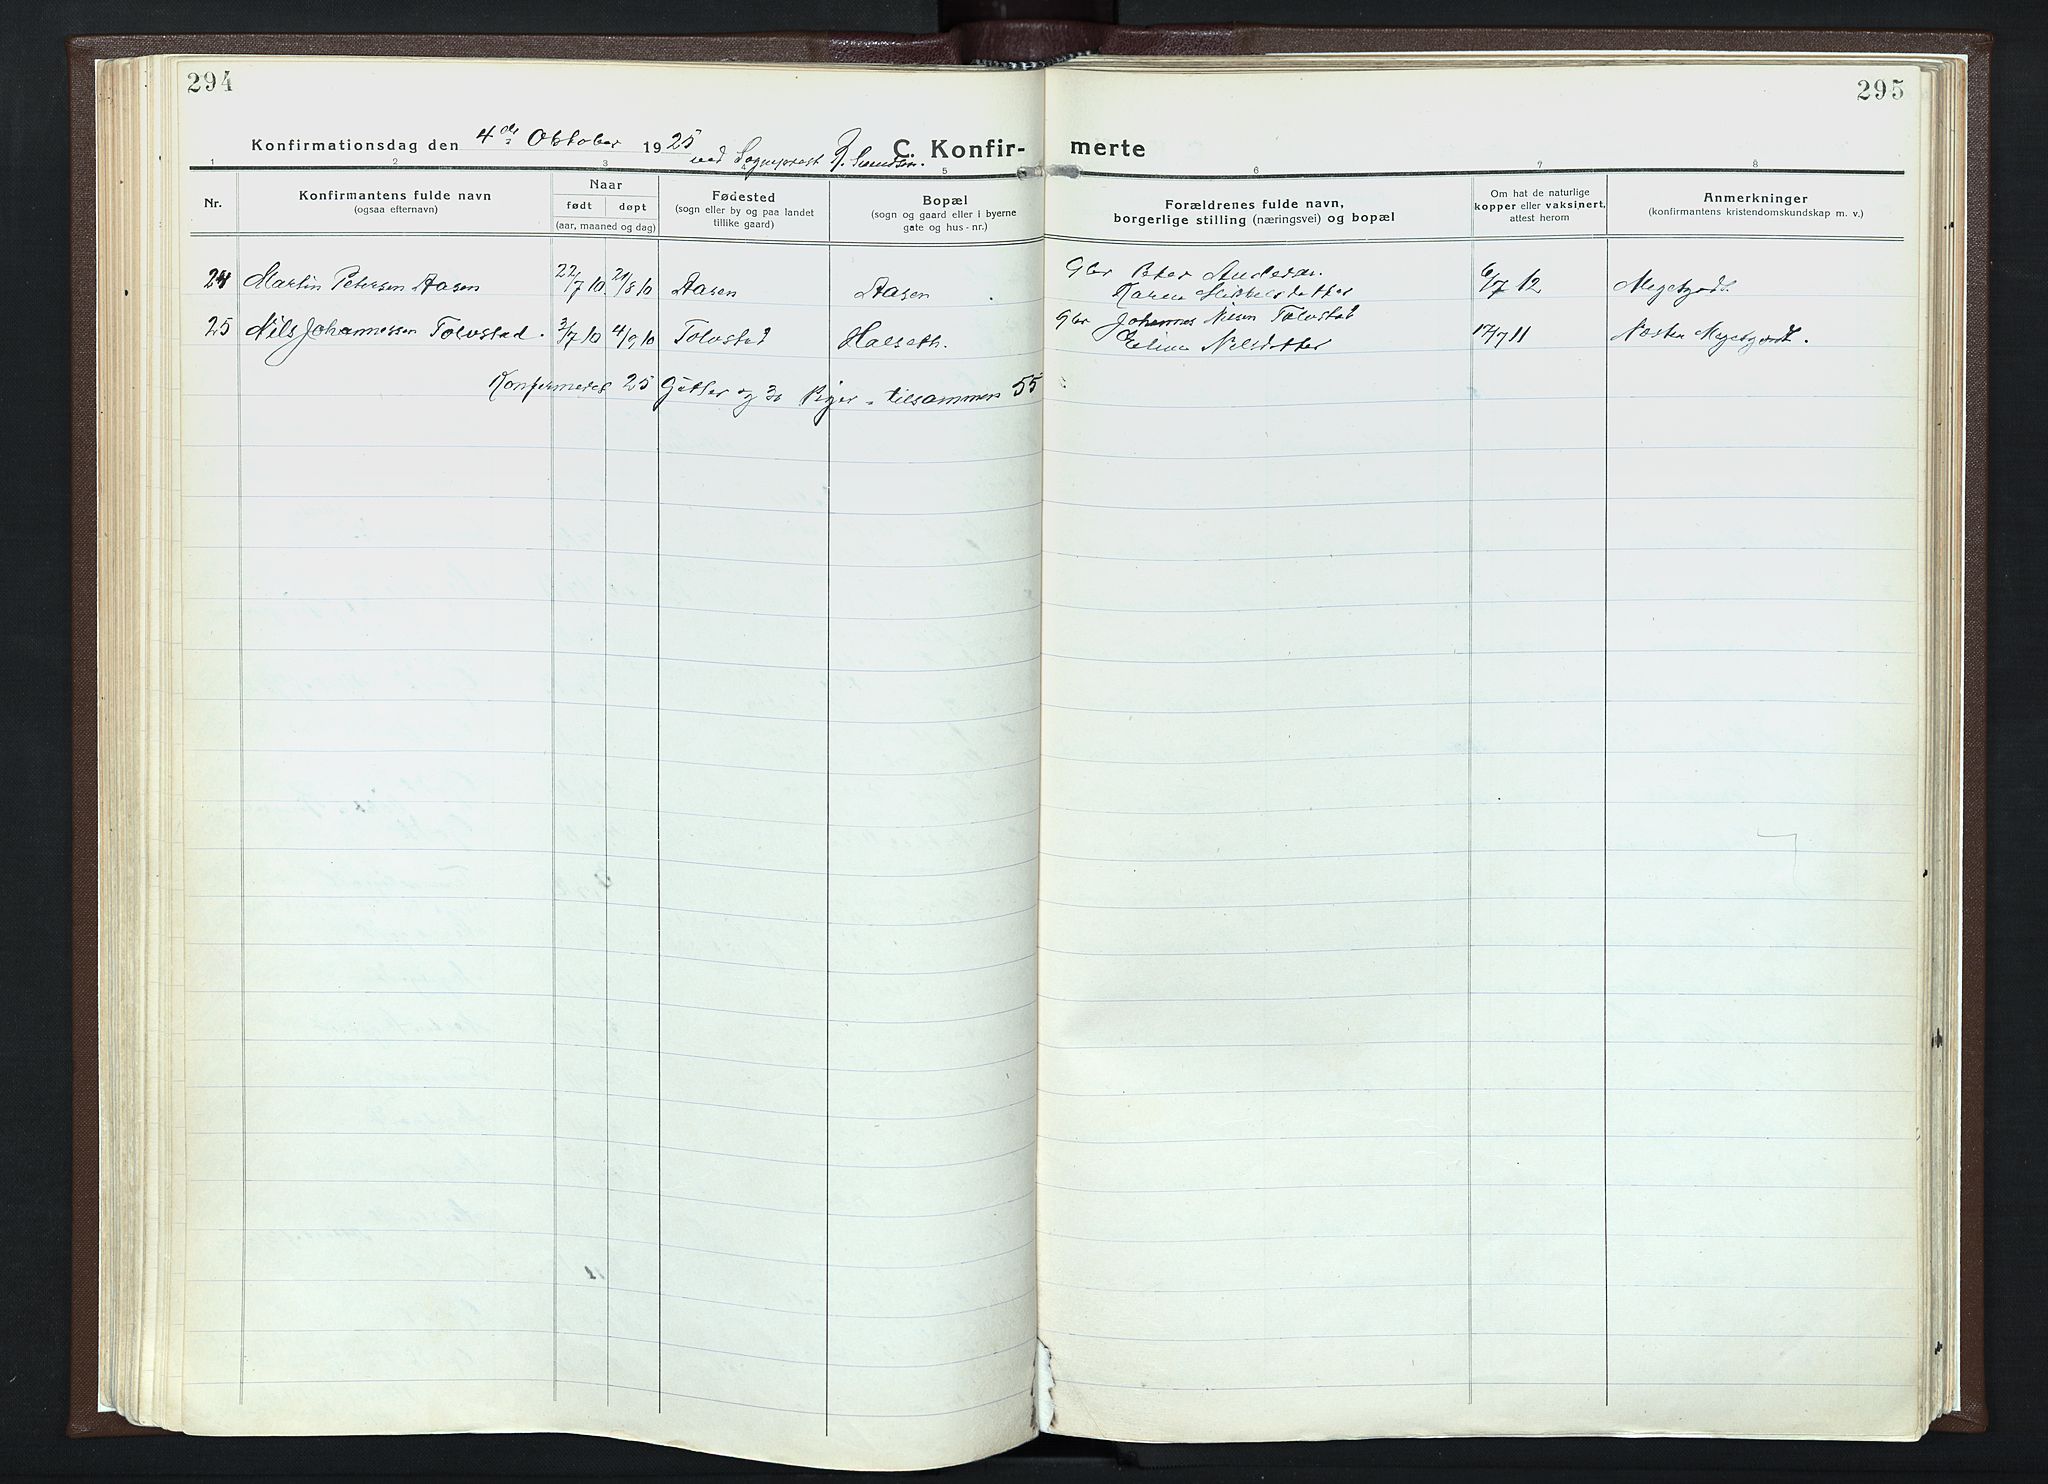 294
295
Konfirmationsdag den 4de Oktober 1925 ved Sogneprest
C. Konfir- merte
1 2 3 5 6 7 8
Nr.
Konfirmantens fulde navn
(ogsaa efternavn)
Naar
født døpt
(aar, maaned og dag)
Fødested
(sogn eller by og paa landet
tillike gaard)
Bopæl
(sogn og gaard eller i byerne
gate og hus-nr.)
Forældrenes fulde navn,
borgerlige stilling (næringsvei) og bopæl
Om hat de naturlige
kopper eller vaksinert,
attest herom
Anmerkninger
(konfirmantens kristendomskundskap m. v.)
24 Martin Petersen Aasen 22/7 10 21/8 10 Aasen Aasen Gbr Peter 6/7 12 Megetgodt
Karen
25 Nils Johannessen Tolvstad. 3/7 10 4/9 10 Tolvstad Halseth. Gbr Johannes Nilsen Tolvstad 17/7 11 Næsten Megetgodt.
Nilsdatter
Konfirmeret 25 Gutter og 30 Piger - tilsammen 55